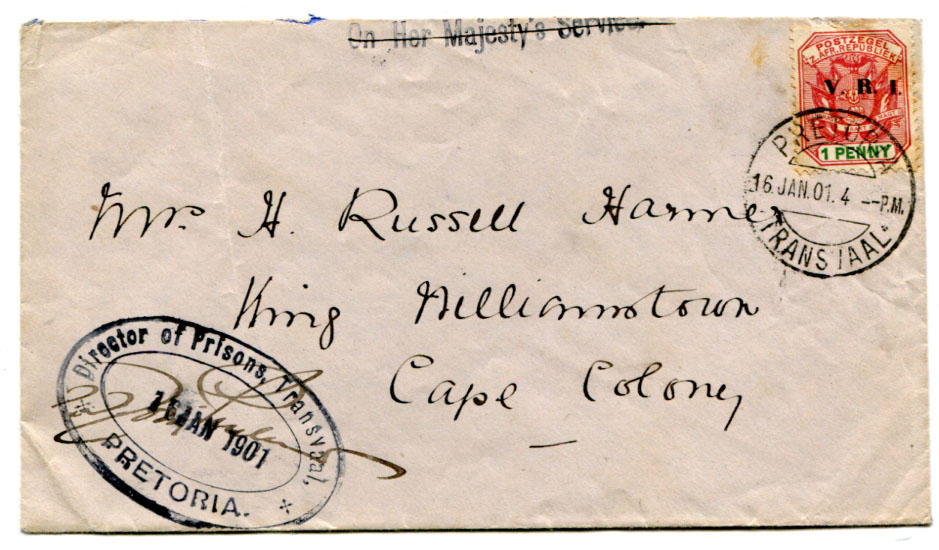 On Her Majesty's Service.
POSTZEGEL
Z. AFR. REPUBLIEK
V. R. I.
1 PENNY
PRETORIA
16 JAN. 01. 4 --P.M.
TRANSVAAL
Mrs H. Russell Harmer
King Williamstown
Cape Colony
Director of Prisons, Transvaal,
16 JAN 1901
PRETORIA.